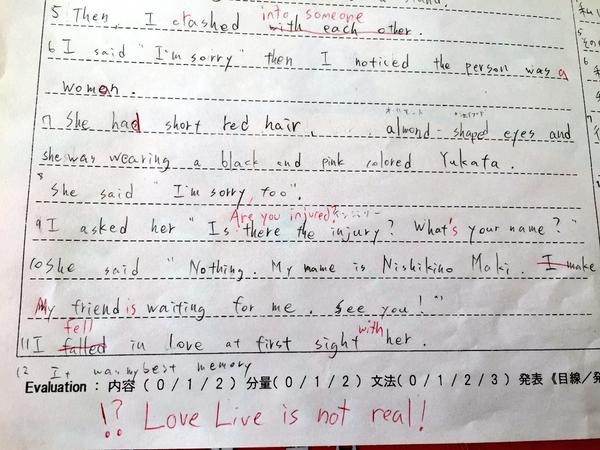 into someone
5 Then, I crashed with each other.
6 I said "I'm sorry" then I noticed the person was a
woman.
7 She had short red hair, almond-shaped eyes and
she was wearing a black and pink colored Yukata.
8
She said "I'm sorry, too".
Are you injured?
9 I asked her "Is there the injury? What's your name?"
10 She said "Nothing. My name is Nishikino Maki. I make
My friend is waiting for me. See you!"
fell with
11 I falled in love at first sight her.
12 It was my best memory
Evaluation : 内容 ( 0 / 1 / 2 ) 分量( 0 / 1 / 2 ) 文法( 0 / 1 / 2 / 3 ) 発表《目線／発
!? Love Live is not real!